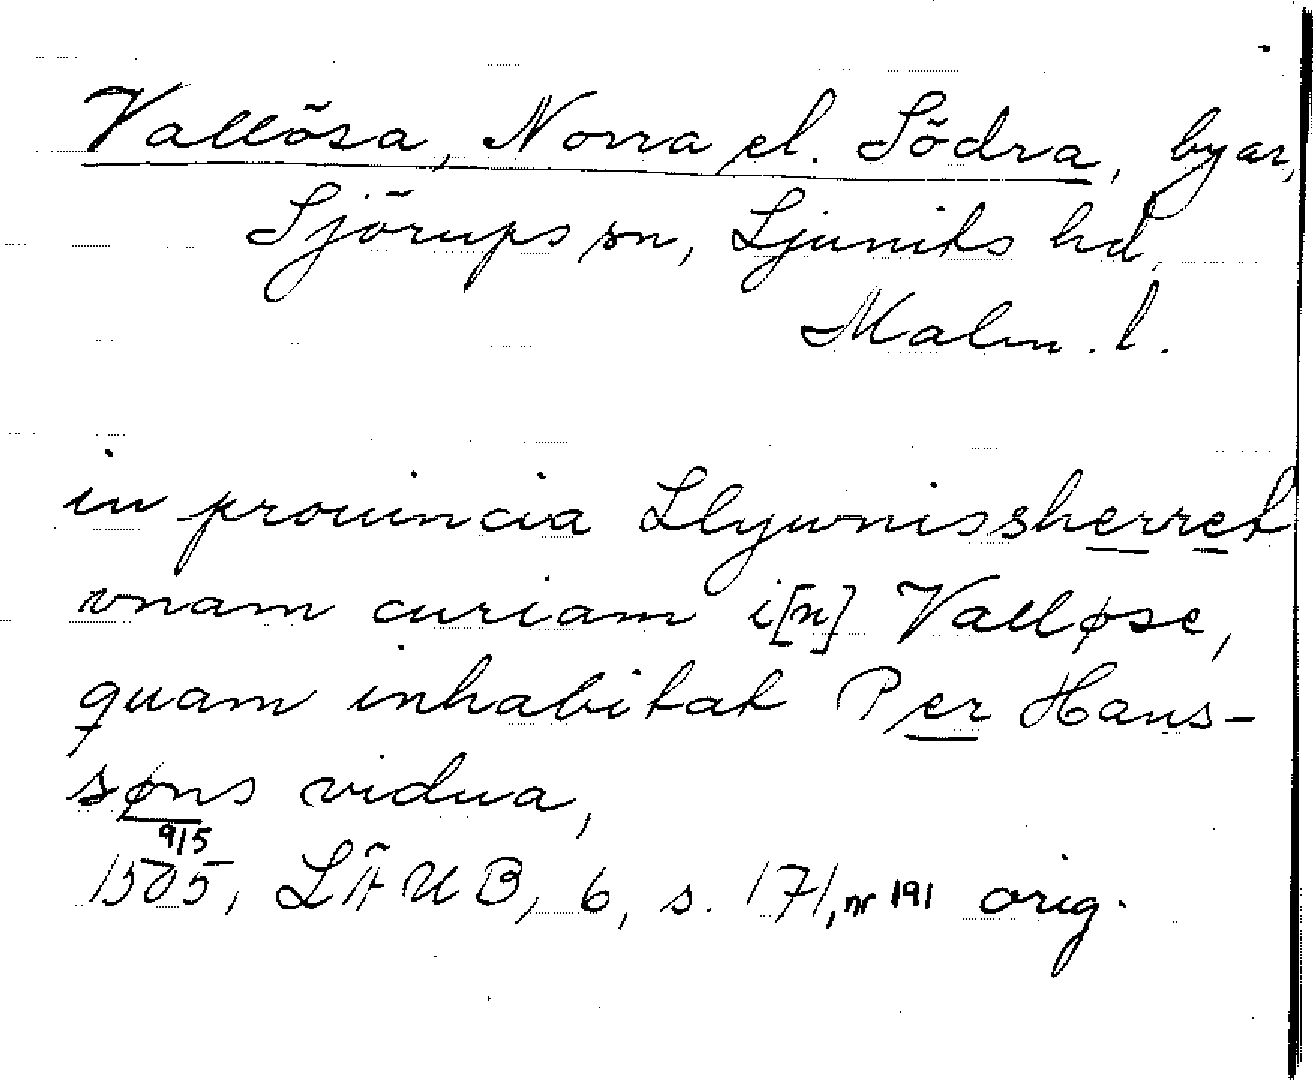 Vallösa, Norra el. Södra, byar,
Sjörups sn, Ljunits hd,
Malm. l.
in prouincia Llywnissherret
vnam curiam i[n]Ælløse,
quam inhabitat Per Hans-
søns vidua,
9/5
1505, LÄUB, 6, s. 171, nr 191 orig.